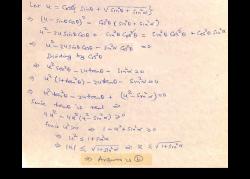 Let u = cosθ{ sinθ + √(sin²θ + sin²α) }
⇒ (u - sinθ cosθ)² = cos²θ (sin²θ + sin²α)
u² - 2u sinθ cosθ + sin²θ cos²θ = sin²θ cos²θ + cos²θ sin²α
⇒ u² - 2u sinθ cosθ - cos²θ sin²α = 0
Dividing by cos²θ
⇒ u² sec²θ - 2u tanθ - sin²α = 0
⇒ u² (1 + tan²θ) - 2u tanθ - sin²α = 0
⇒ u² tan²θ - 2u tanθ + (u² - sin²α) = 0
Since tanθ is real ⇒
4u² - 4u² (u² - sin²α) ≥ 0
⇒ 1 - u² + sin²α ≥ 0
⇒ u² ≤ 1 + sin²α
⇒ |u| ≤ √(1 + sin²α) ≤ √(1 + sin²α)
⇒ Answer is